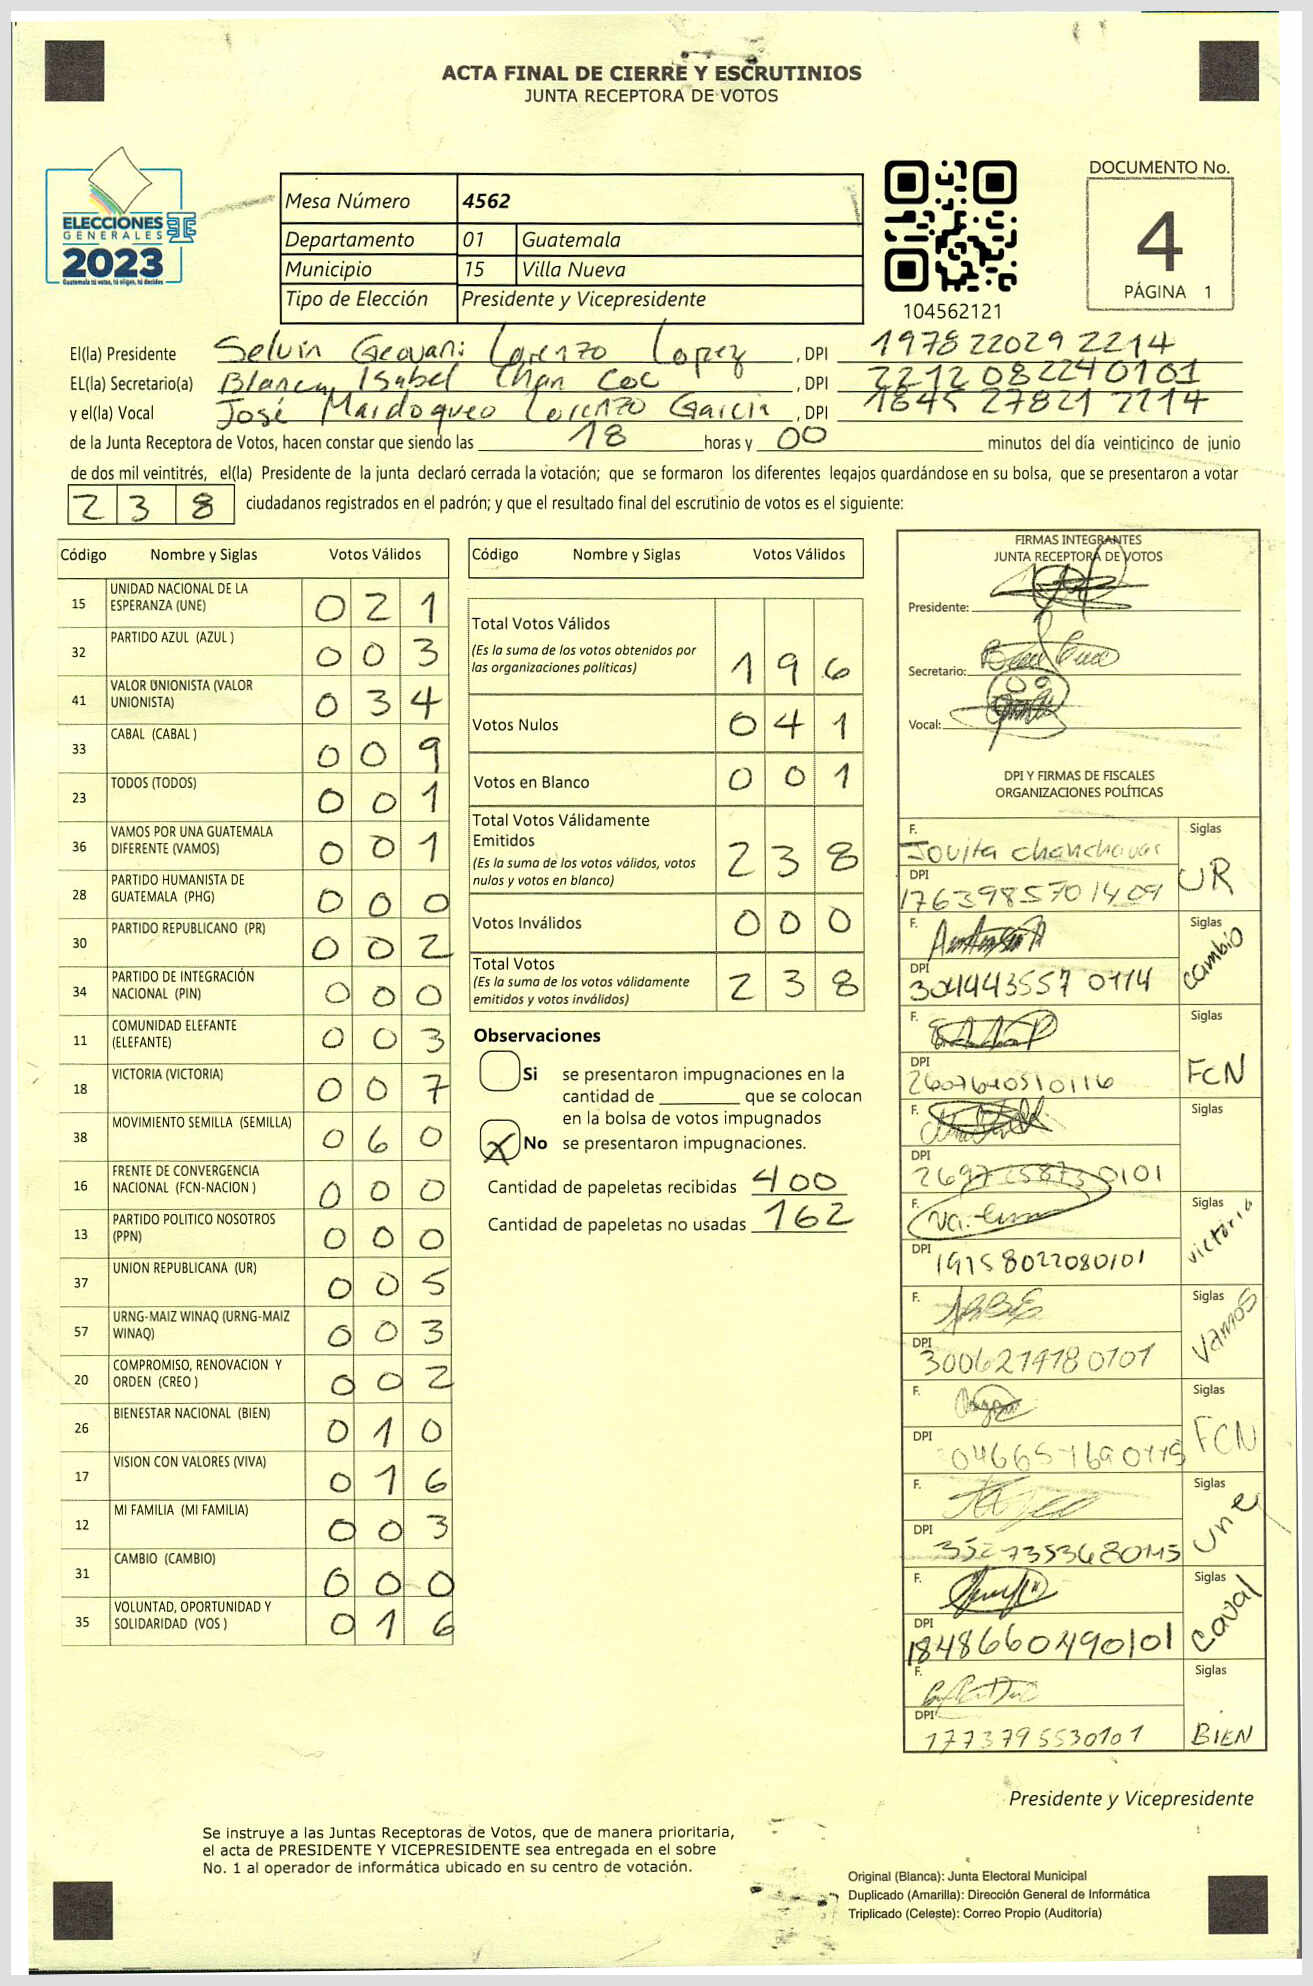 ACTA FINAL DE CIERRE Y ESCRUTINIOS
JUNTA RECEPTORA DE VOTOS
ELECCIONES
GENERALES
2023
Guatemala tú votas, tú eliges, tú decides
Mesa Número 4562
Departamento 01 Guatemala
Municipio 15 Villa Nueva
Tipo de Elección Presidente y Vicepresidente
104562121
DOCUMENTO No.
4
PÁGINA 1
El(la) Presidente Selvin Geovani Lorenzo Lopez, DPI 1978 22029 2214
EL(la) Secretario(a) Blanca Isabel Chan Coc, DPI 2212 08224 0101
y el(la) Vocal José Mardoqueo Lorenzo Garcia, DPI 1645 27821 2214
de la Junta Receptora de Votos, hacen constar que siendo las 18 horas y 00 minutos del día veinticinco de junio
de dos mil veintitrés, el(la) Presidente de la junta declaró cerrada la votación; que se formaron los diferentes legajos guardándose en su bolsa, que se presentaron a votar
238 ciudadanos registrados en el padrón; y que el resultado final del escrutinio de votos es el siguiente:
Código Nombre y Siglas Votos Válidos
15 UNIDAD NACIONAL DE LA ESPERANZA (UNE) 021
32 PARTIDO AZUL (AZUL ) 003
41 VALOR UNIONISTA (VALOR UNIONISTA) 034
33 CABAL (CABAL ) 009
23 TODOS (TODOS) 001
36 VAMOS POR UNA GUATEMALA DIFERENTE (VAMOS) 001
28 PARTIDO HUMANISTA DE GUATEMALA (PHG) 000
30 PARTIDO REPUBLICANO (PR) 002
34 PARTIDO DE INTEGRACIÓN NACIONAL (PIN) 000
11 COMUNIDAD ELEFANTE (ELEFANTE) 003
18 VICTORIA (VICTORIA) 007
38 MOVIMIENTO SEMILLA (SEMILLA) 060
16 FRENTE DE CONVERGENCIA NACIONAL (FCN-NACION ) 000
13 PARTIDO POLITICO NOSOTROS (PPN) 000
37 UNION REPUBLICANA (UR) 005
57 URNG-MAIZ WINAQ (URNG-MAIZ WINAQ) 003
20 COMPROMISO, RENOVACION Y ORDEN (CREO ) 002
26 BIENESTAR NACIONAL (BIEN) 010
17 VISION CON VALORES (VIVA) 016
12 MI FAMILIA (MI FAMILIA) 003
31 CAMBIO (CAMBIO) 000
35 VOLUNTAD, OPORTUNIDAD Y SOLIDARIDAD (VOS ) 016
Código Nombre y Siglas Votos Válidos
Total Votos Válidos 196
(Es la suma de los votos obtenidos por
las organizaciones políticas)
Votos Nulos 041
Votos en Blanco 001
Total Votos Válidamente
Emitidos 238
(Es la suma de los votos válidos, votos
nulos y votos en blanco)
Votos Inválidos 000
Total Votos 238
(Es la suma de los votos válidamente
emitidos y votos inválidos)
Observaciones
Si se presentaron impugnaciones en la
cantidad de ________ que se colocan
en la bolsa de votos impugnados
X No se presentaron impugnaciones.
Cantidad de papeletas recibidas 400
Cantidad de papeletas no usadas 162
FIRMAS INTEGRANTES
JUNTA RECEPTORA DE VOTOS
Presidente:
Secretario:
Vocal:
DPI Y FIRMAS DE FISCALES
ORGANIZACIONES POLÍTICAS
F. Jovita Siglas UR
DPI 1763985701409
F. Siglas cambio
DPI 304443557 0114
F. Siglas FCN
DPI
F. Siglas
DPI
F. Siglas victoria
DPI 19158022080101
F. Siglas Vamos
DPI
F. Siglas FCN
DPI
F. Siglas une
DPI
F. Siglas Caval
DPI 1848660490101
F. Siglas BIEN
DPI 1773795530101
Presidente y Vicepresidente
Se instruye a las Juntas Receptoras de Votos, que de manera prioritaria,
el acta de PRESIDENTE Y VICEPRESIDENTE sea entregada en el sobre
No. 1 al operador de informática ubicado en su centro de votación.
Original (Blanca): Junta Electoral Municipal
Duplicado (Amarilla): Dirección General de Informática
Triplicado (Celeste): Correo Propio (Auditoría)